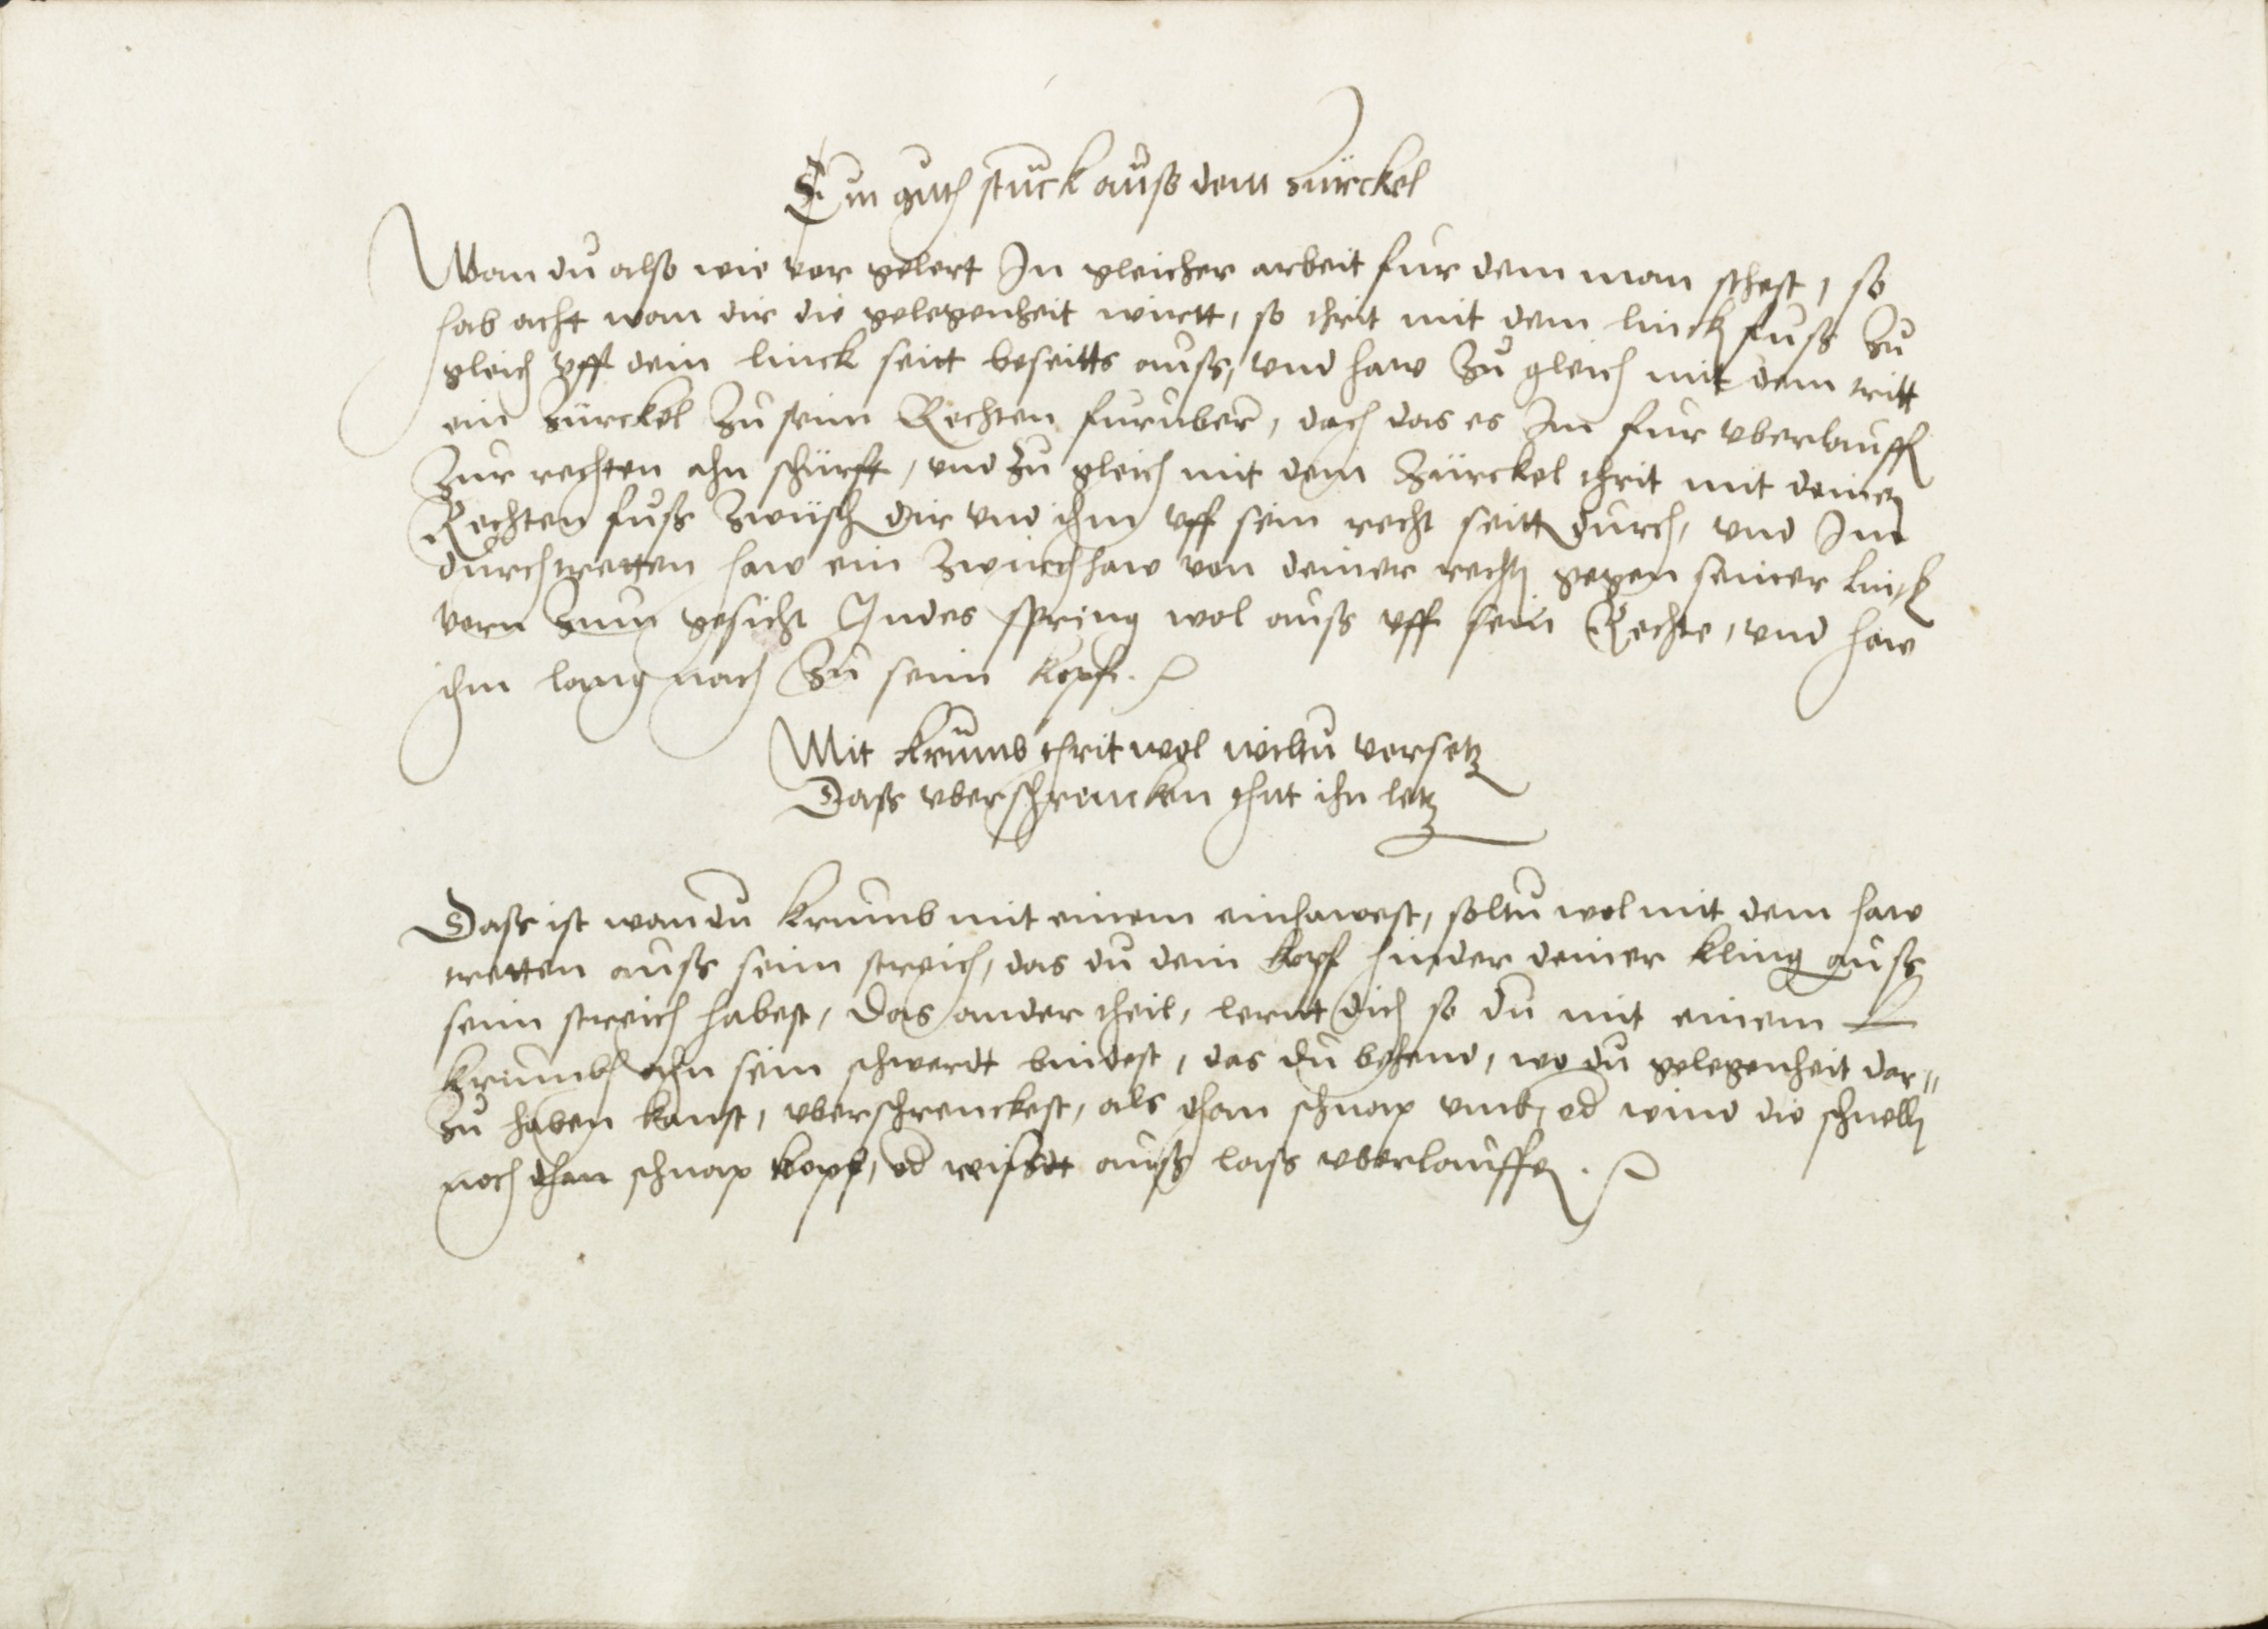 Ein guth stuck auß dem zürckel
Wan du also wie vor gelert In gleicher arbeit fur dem man stehest, so
hab acht wan dir die gelegenheit wirtt, so thrit mit dem linckn fuß zu
gleich vff dein linck seitt beseitts auß, vnd haw zu gleich mit dem tritt
ein zürckel zu seim Rechten furuber, doch das es Im fur vberlauffn
zur rechten ohn schürfft, vnd zu gleich mit dem Zürckel thrit mit deinen
Rechten fuß zwüschn dir vnd ihm vff sein recht seittn durch, vnd Im
durchtretten haw ein zwürchhaw von deiner rechtn gegen seiner linckn
vorn zum gesicht Indes spring wol auß vff sein Rechte, vnd haw
ihm lang nach zu seim kopff.
Mit krumb thrit wol wiltu versetzn
Daß vberschrencken thut ihn letzn
Daß ist wan du krumb mit einem einhawest, soltu wol mit dem haw
tretten auß seim streich, das du dein kopff hinder deiner kling auß
seim streich habest, Das ander theil, lernt dich so du mit einem
krumbh ahn sein schwerdt bindest, das du behend, wo du gelegenheit dar=
zu haben kanst, vberschrenckest, als than schnap vmb, od wind die schnelln
noch than schnap kopff, od auß laß vberlauffen.